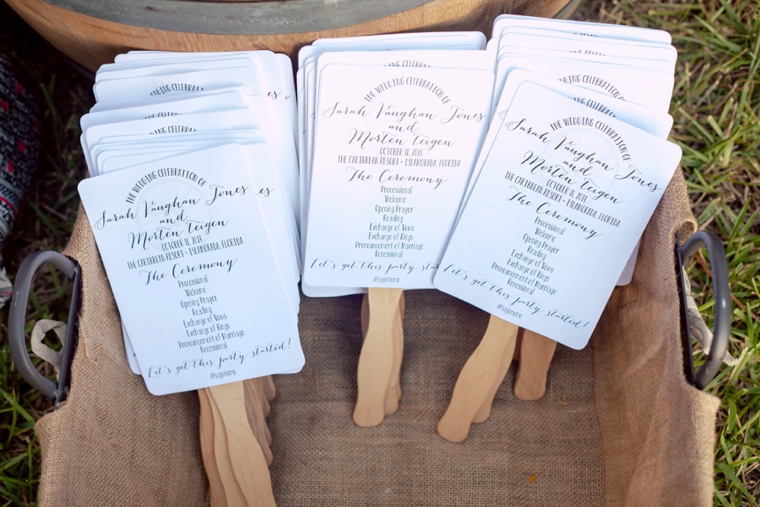 THE WEDDING CELEBRATION OF
Sarah Vaughan Jones
and
Morten Teigen
OCTOBER 11, 2014
THE CARIBBEAN RESORT • ISLAMORADA, FLORIDA
The Ceremony
Processional
Welcome
Opening Prayer
Reading
Exchange of Vows
Exchange of Rings
Pronouncement of Marriage
Recessional
Let's get this party started!
THE WEDDING CELEBRATION OF
Sarah Vaughan Jones
and
Morten Teigen
OCTOBER 11, 2014
THE CARIBBEAN RESORT • ISLAMORADA, FLORIDA
The Ceremony
Processional
Welcome
Opening Prayer
Reading
Exchange of Vows
Exchange of Rings
Pronouncement of Marriage
Recessional
Let's get this party sta
THE WEDDING CELEBRATION OF
Sarah Vaughan Jones
and
Morten Teigen
OCTOBER 11, 2014
THE CARIBBEAN RESORT • ISLAMORADA, FLORIDA
The Ceremony
Processional
Welcome
Opening Prayer
Reading
Exchange of Vows
Exchange of Rings
Pronouncement of Marriage
Recessional
Let's get this party started!